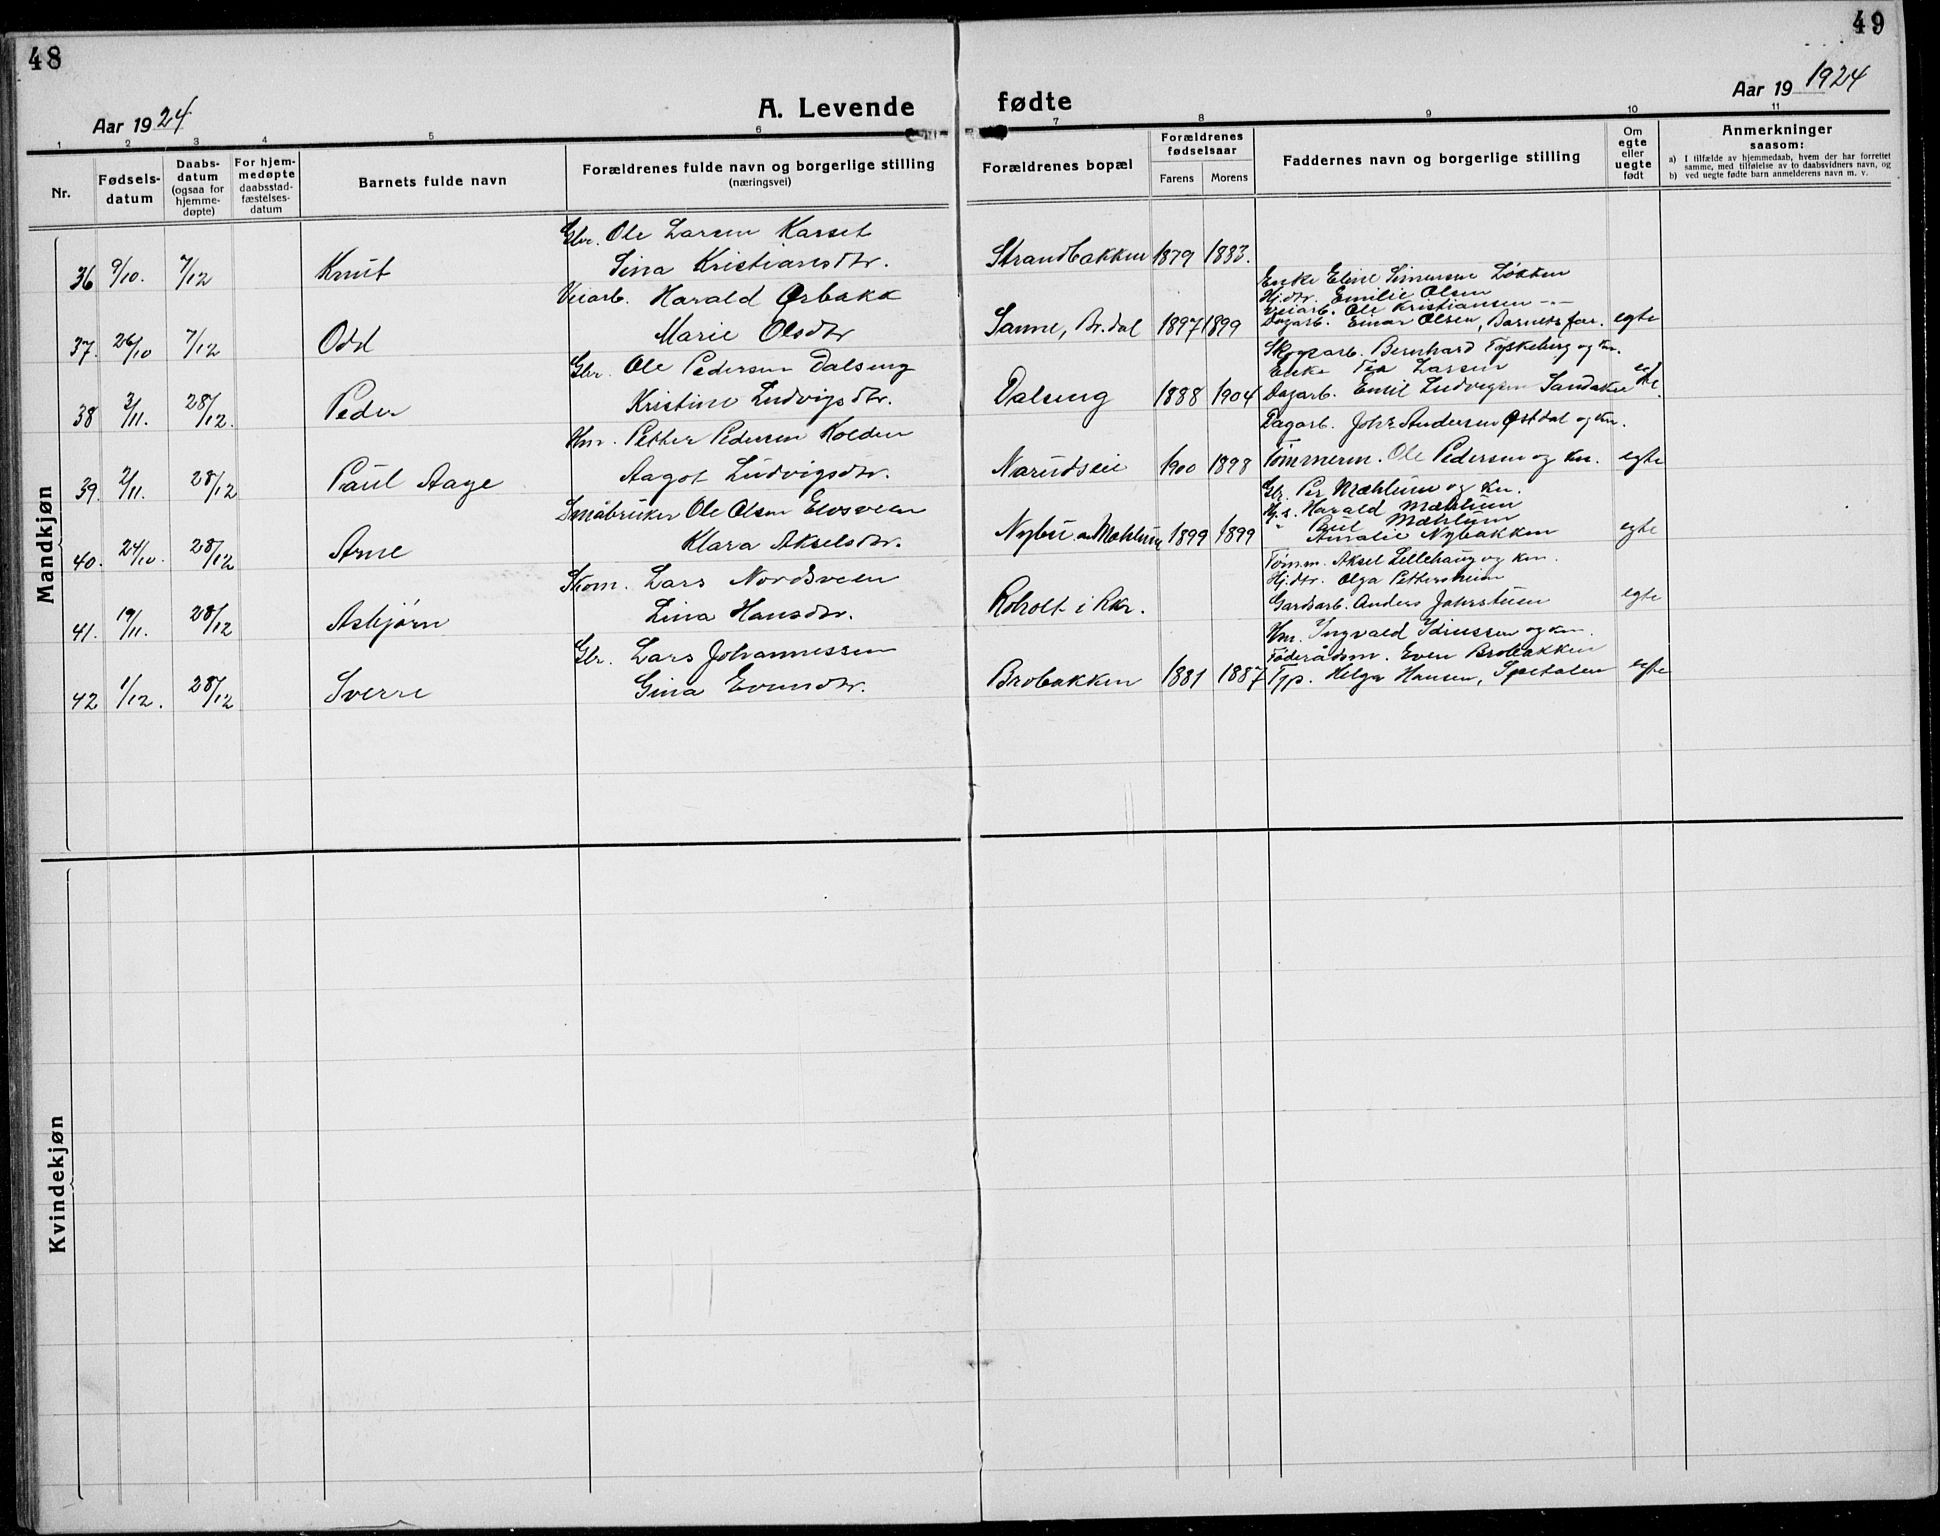 48
49
Aar 1924
A. Levende fødte
Aar 19 1924
1 2 3 4 5 6 7 8 9 10 11
Nr.
Fødsels-
datum
Daabs-
datum
(ogsaa for
hjemme-
døpte)
For hjem-
medøpte
daabsstad-
fæstelses-
datum
Barnets fulde navn
Forældrenes fulde navn og borgerlige stilling
(næringsvei)
Forældrenes bopæl
Forældrenes
fødselsaar
Farens Morens
Faddernes navn og borgerlige stilling
Om
egte
eller
uegte
født
Anmerkninger
saasom:
a) I tilfælde av hjemmedaab, hvem der har forrettet
samme, med tilføielse av to daabsvidners navn, og
b) ved uegte fødte barn anmelderens navn m. v.
Mandkjøn
Gbr. Ole Larsen Karset
36 9/10. 7/12 Knut Sina Kristiansdtr. Strandbakken 1879 1883.
Veiarb. Harald Ørbakk
37. 26/10 7/12 Odd Marie Olsdtr Sanne, Br.dal 1897 1899
Enke Eline Simensen Løkken
Hj.dtr. Emilie Olsen
Veiarb. Ole Kristiansen -"-
Dagarb. Einar Olsen, Barnets far. egte
Gbr. Ole Pedersen Dalseng
38 3/11. 28/12. Peder Kristine Ludvigsdtr. Dalseng 1888 1904
Skogsarb. Bernhard Fyskeberg og kn.
Enke Tea Larsen
Dagarb. Emil Ludvigsen Sandaker egte.
Hm. Petter Pedersen Kolden
39. 2/11. 28/12 Paul Aage Aagot Ludvigsdtr. Narudseie 1900 1898
Dagarb. Joh. Andersen Østdal og kn.
Tømmerm. Ole Pedersen og kn. egte
Småbruker Ole Olsen Elvsveen
40. 24/10. 28/12 Arne Klara Akselsdtr. Nybu u. Mæhlum 1899 1899
Gbr. Per Mæhlum og kn.
Hj.s. Harald Mæhlum
" Paul Mæhlum
Amalie Nybakken egte
Skom. Lars Nordsveen
41. 19/11. 28/12 Asbjørn Lina Hansdtr. Roholt i Rkr.
Tømm. Aksel Lillehaug og kn.
Hj.dtr. Olga Petterstuen
Gardsarb. Anders Jahrstuen egte
Gbr. Lars Johannessen
42 1/12. 28/12 Sverre Gina Evensdtr. Brobakken 1881 1887
Hm. Ingvald Idriussen og kn.
Føderådsm. Even Brobakken
Typ. Helga Hansen, Spetalen egte
Kvindekjøn